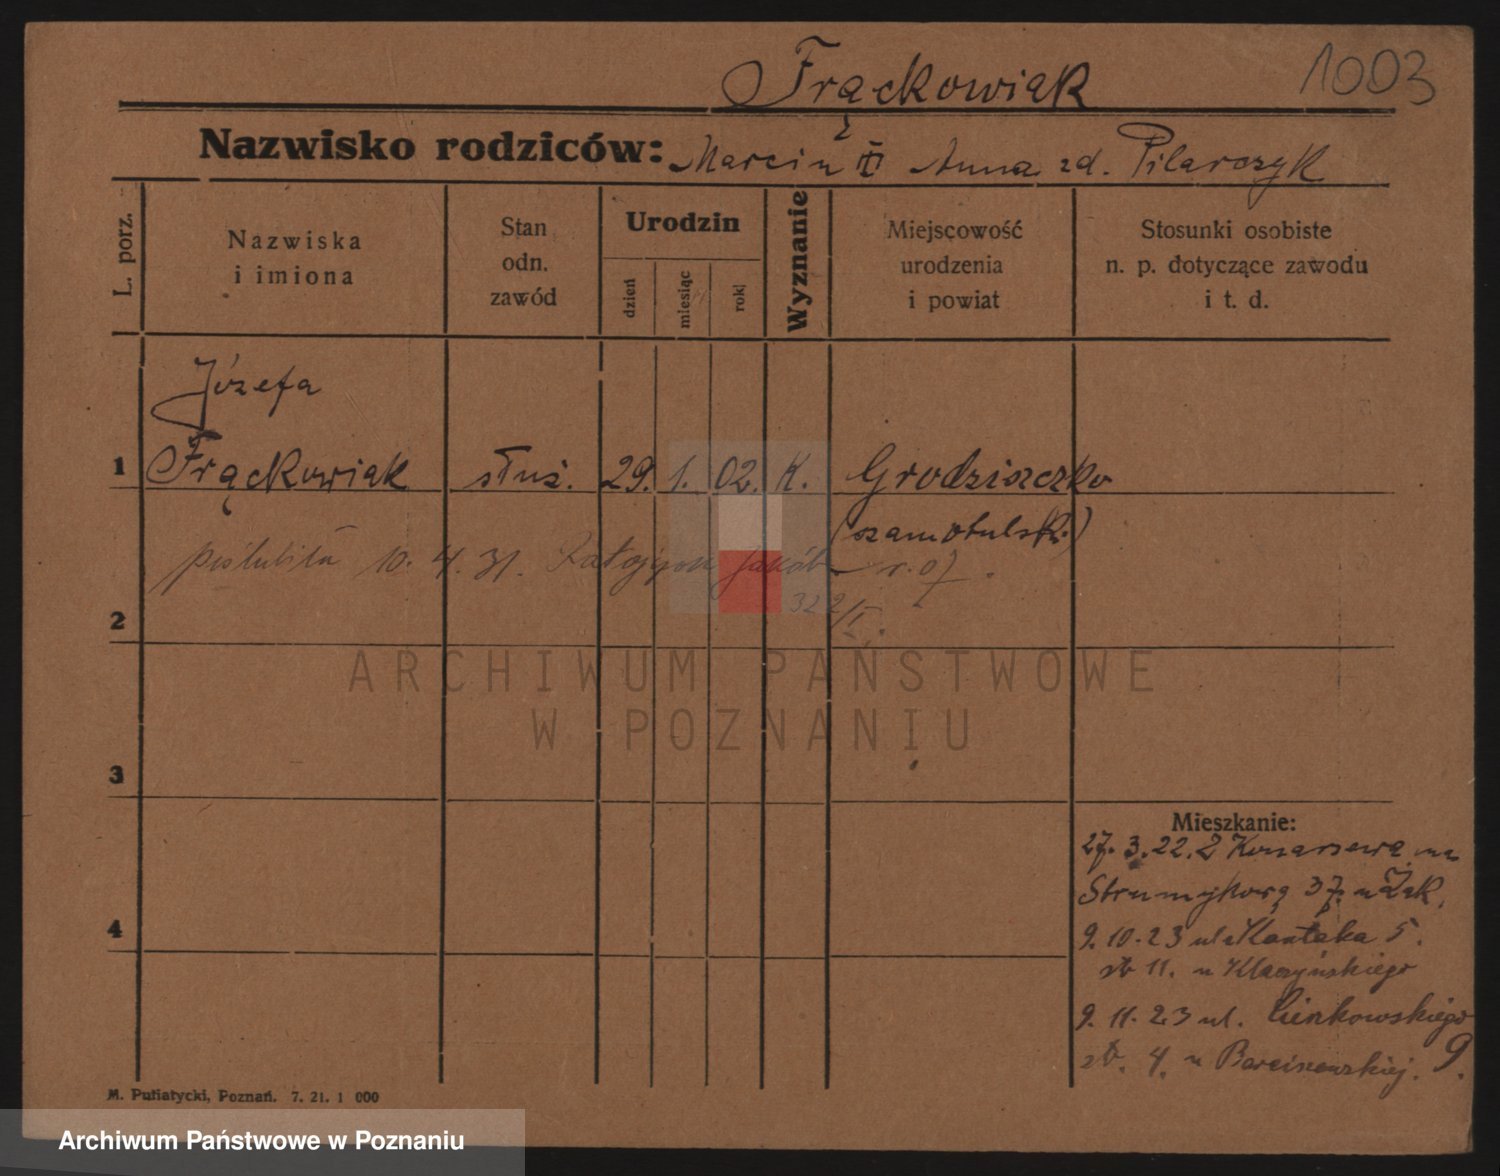 1003
Frąckowiak
Nazwisko rodziców: Marcin Anna zd. Pilarczyk
L. porz.
Nazwiska
i imiona
Stan
odn.
zawód
Urodzin
dzień
miesiąc
rok
Wyznanie
Miejscowość
urodzenia
i powiat
Stosunki osobiste
n. p. dotyczące zawodu
i t. d.
Józefa
1 Frąckowiak służ. 29. 1. 02. K. Grodziszczko
(szamotulski)
poślubiła 10. 4. 31. Jakób r. 07.
2
ARCHIWUM PAŃSTWOWE
W POZNANIU
3
Mieszkanie:
27. 3. 22. Z Konarzewa na
Strumykową 37. u Żak.
4
9. 10. 23 ul. Kantaka 5.
11. u Klaczyńskiego
9. 11. 23 ul. Cienkowskiego
4. u Barciszewskiej. 9.
M. Putiatycki, Poznań. 7. 21. 1 000
Archiwum Państwowe w Poznaniu